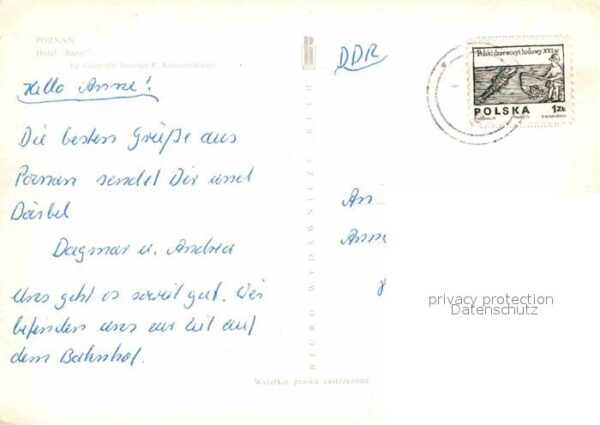 POZNAŃ
Hotel „Bazar"
wg litografii
DDR
Polski drzeworyt ludowy XVI w.
POLSKA 1 ZŁ
Hello Anne!
Die besten Grüße aus
Poznan sendet Dir und
Bärbel
Dagmar u. Andrea
Uns geht es soweit gut. Wir
befinden uns zur Zeit auf
dem Bahnhof.
BIURO WYDAWNICZE RUCH
An
Anne
privacy protection
Datenschutz
Wszelkie prawa zastrzeżone